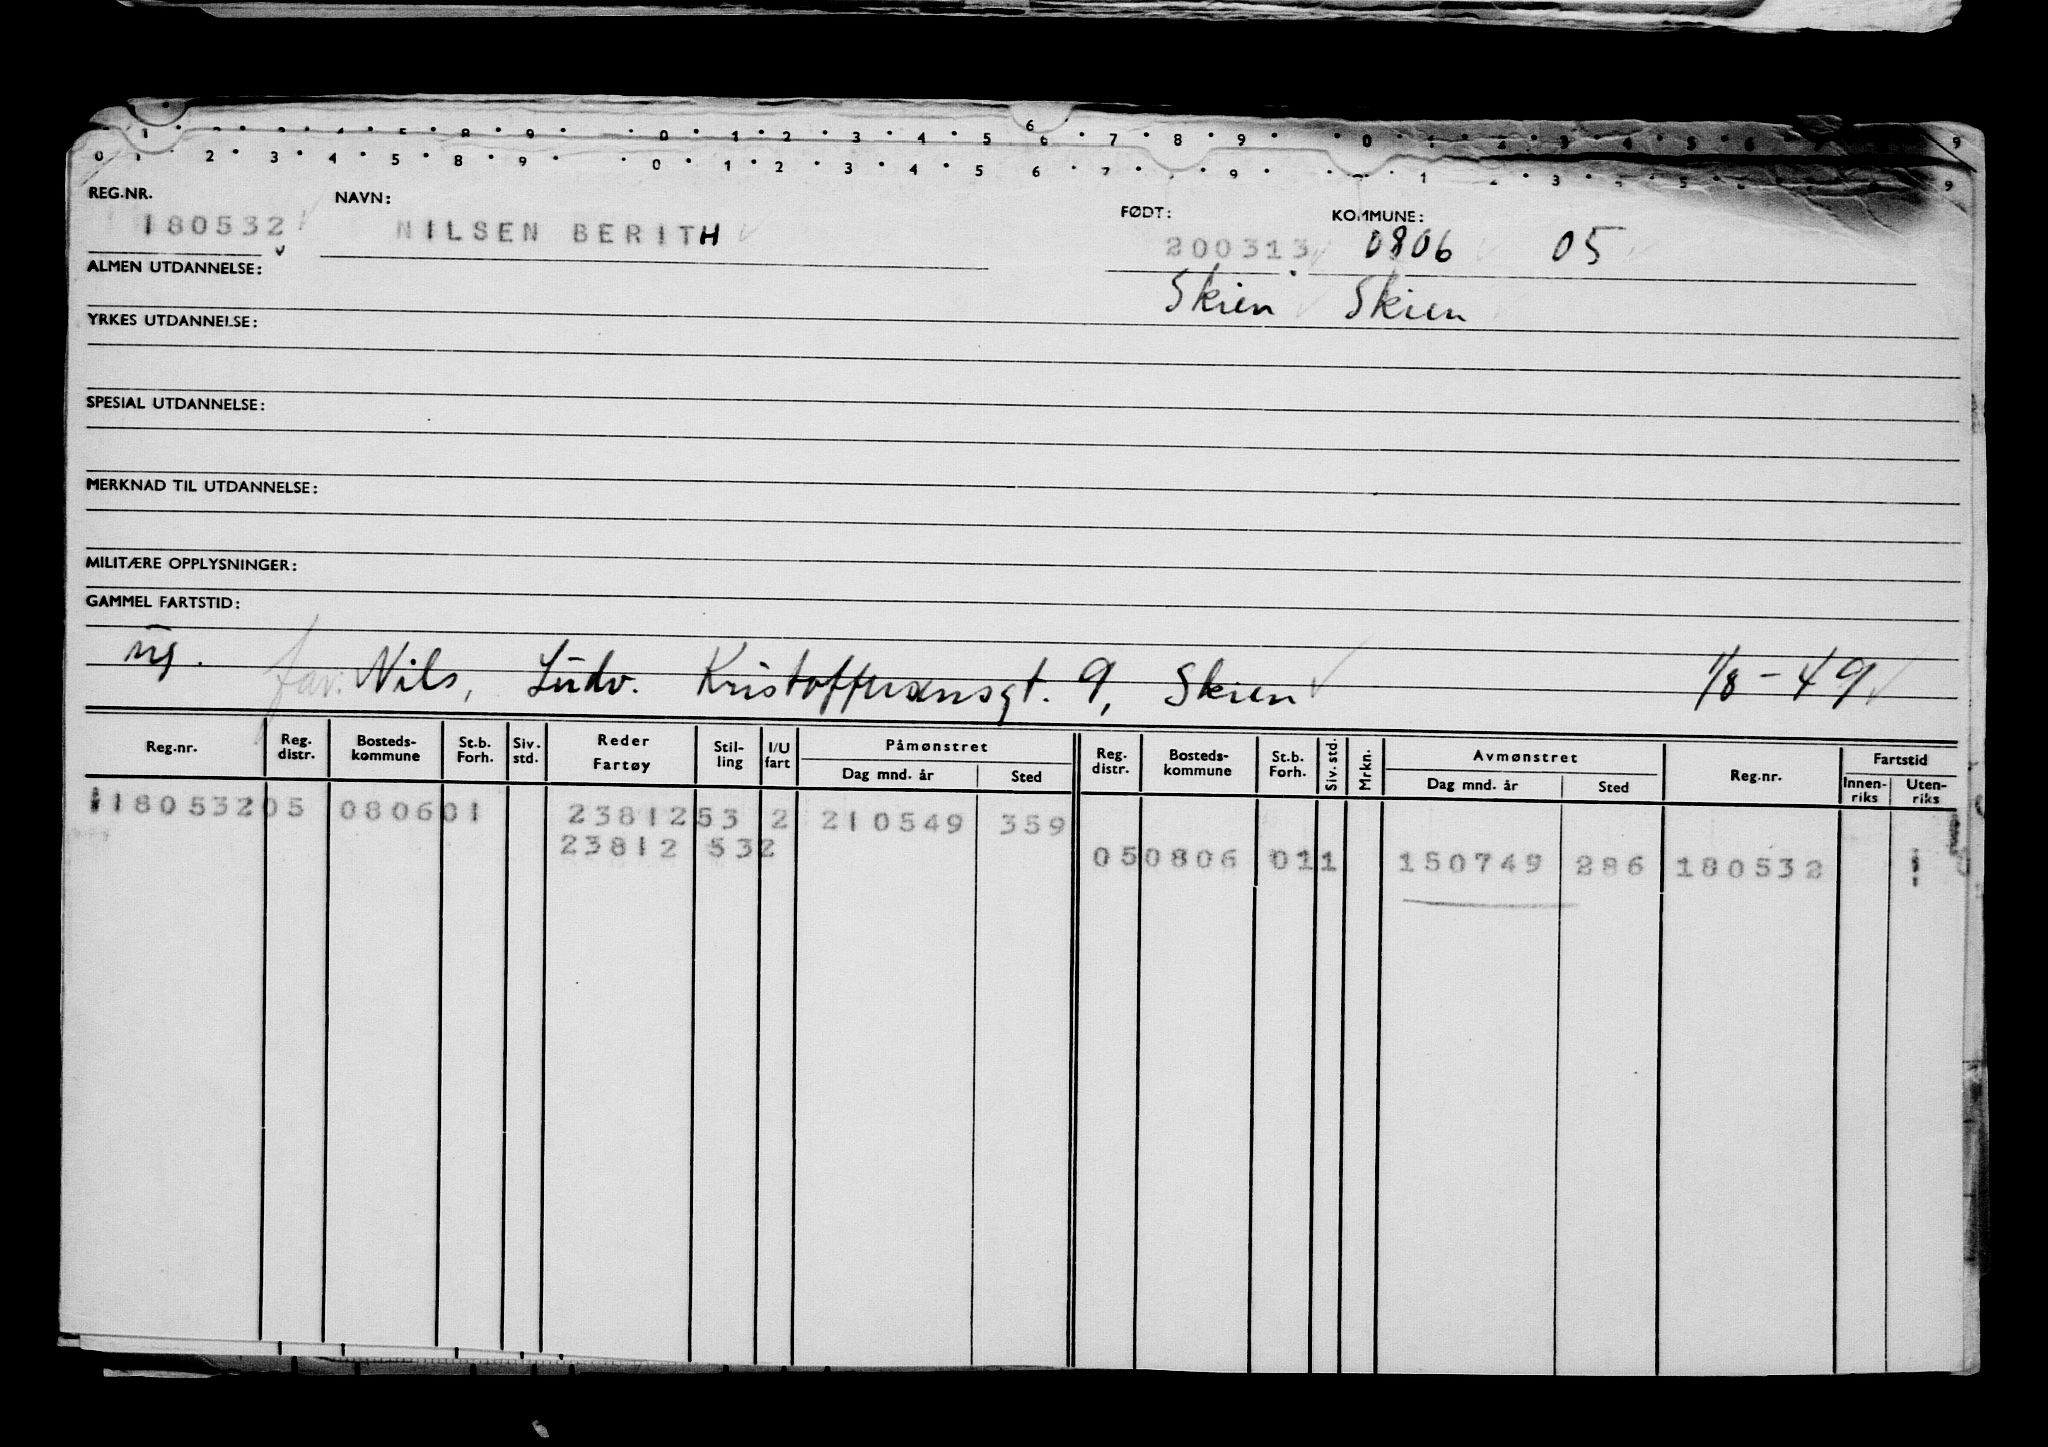 0 1 2 3 4 5 8 9 0 1 2 3 4 5 6 7 9 1 3 5 9
REG.NR. NAVN: FØDT: KOMMUNE:
180532 NILSEN BERITH 200313 0806 05
ALMEN UTDANNELSE: Skien Skien
YRKES UTDANNELSE:
SPESIAL UTDANNELSE:
MERKNAD TIL UTDANNELSE:
MILITÆRE OPPLYSNINGER:
GAMMEL FARTSTID:
ug. far: Nils, Ludv. Kristoffersensgt. 9, Skien 1/8-49
Reg.nr. Reg. distr. Bosteds-kommune St.b. Forh. Siv. std. Reder Fartøy Stil-ling I/U fart Påmønstret Dag mnd. år Sted Reg. distr. Bosteds-kommune St.b. Forh. Siv. std. Mrkn. Avmønstret Dag mnd. år Sted Reg.nr. Fartstid Innen-riks Uten-riks
118053205 080601 2381253 2 210549 359
23812 532 050806 011 150749 286 180532 1